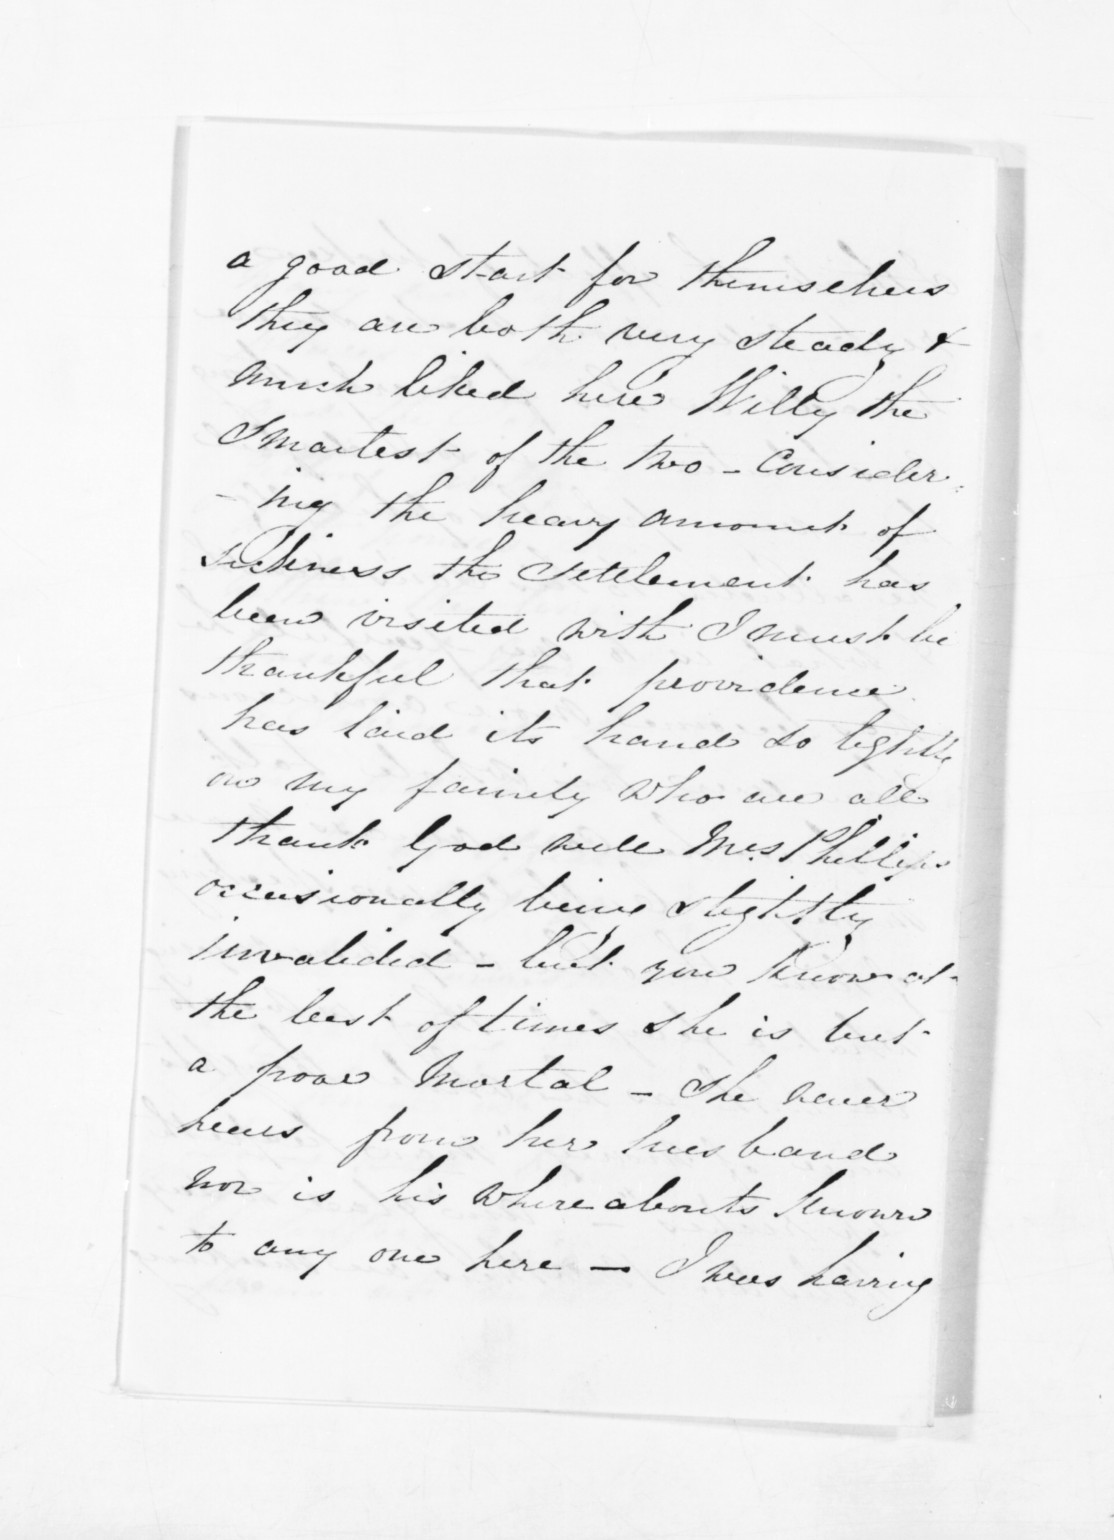 a good start for themselves
they are both very steady &
much liked here Willy the
Smartest of the two - Consider-
- ing the heavy amount of
Sickness the Settlement has
been visited with I must be
thankful that providence
has laid its hand so lightly
on my family who are all
thank God well Mrs Phillips
occasionally being slightly
invalided - but you know at
the best of times she is but
a poor Mortal - She never
hears from her husband
nor is his whereabouts known
to any one here — I was having